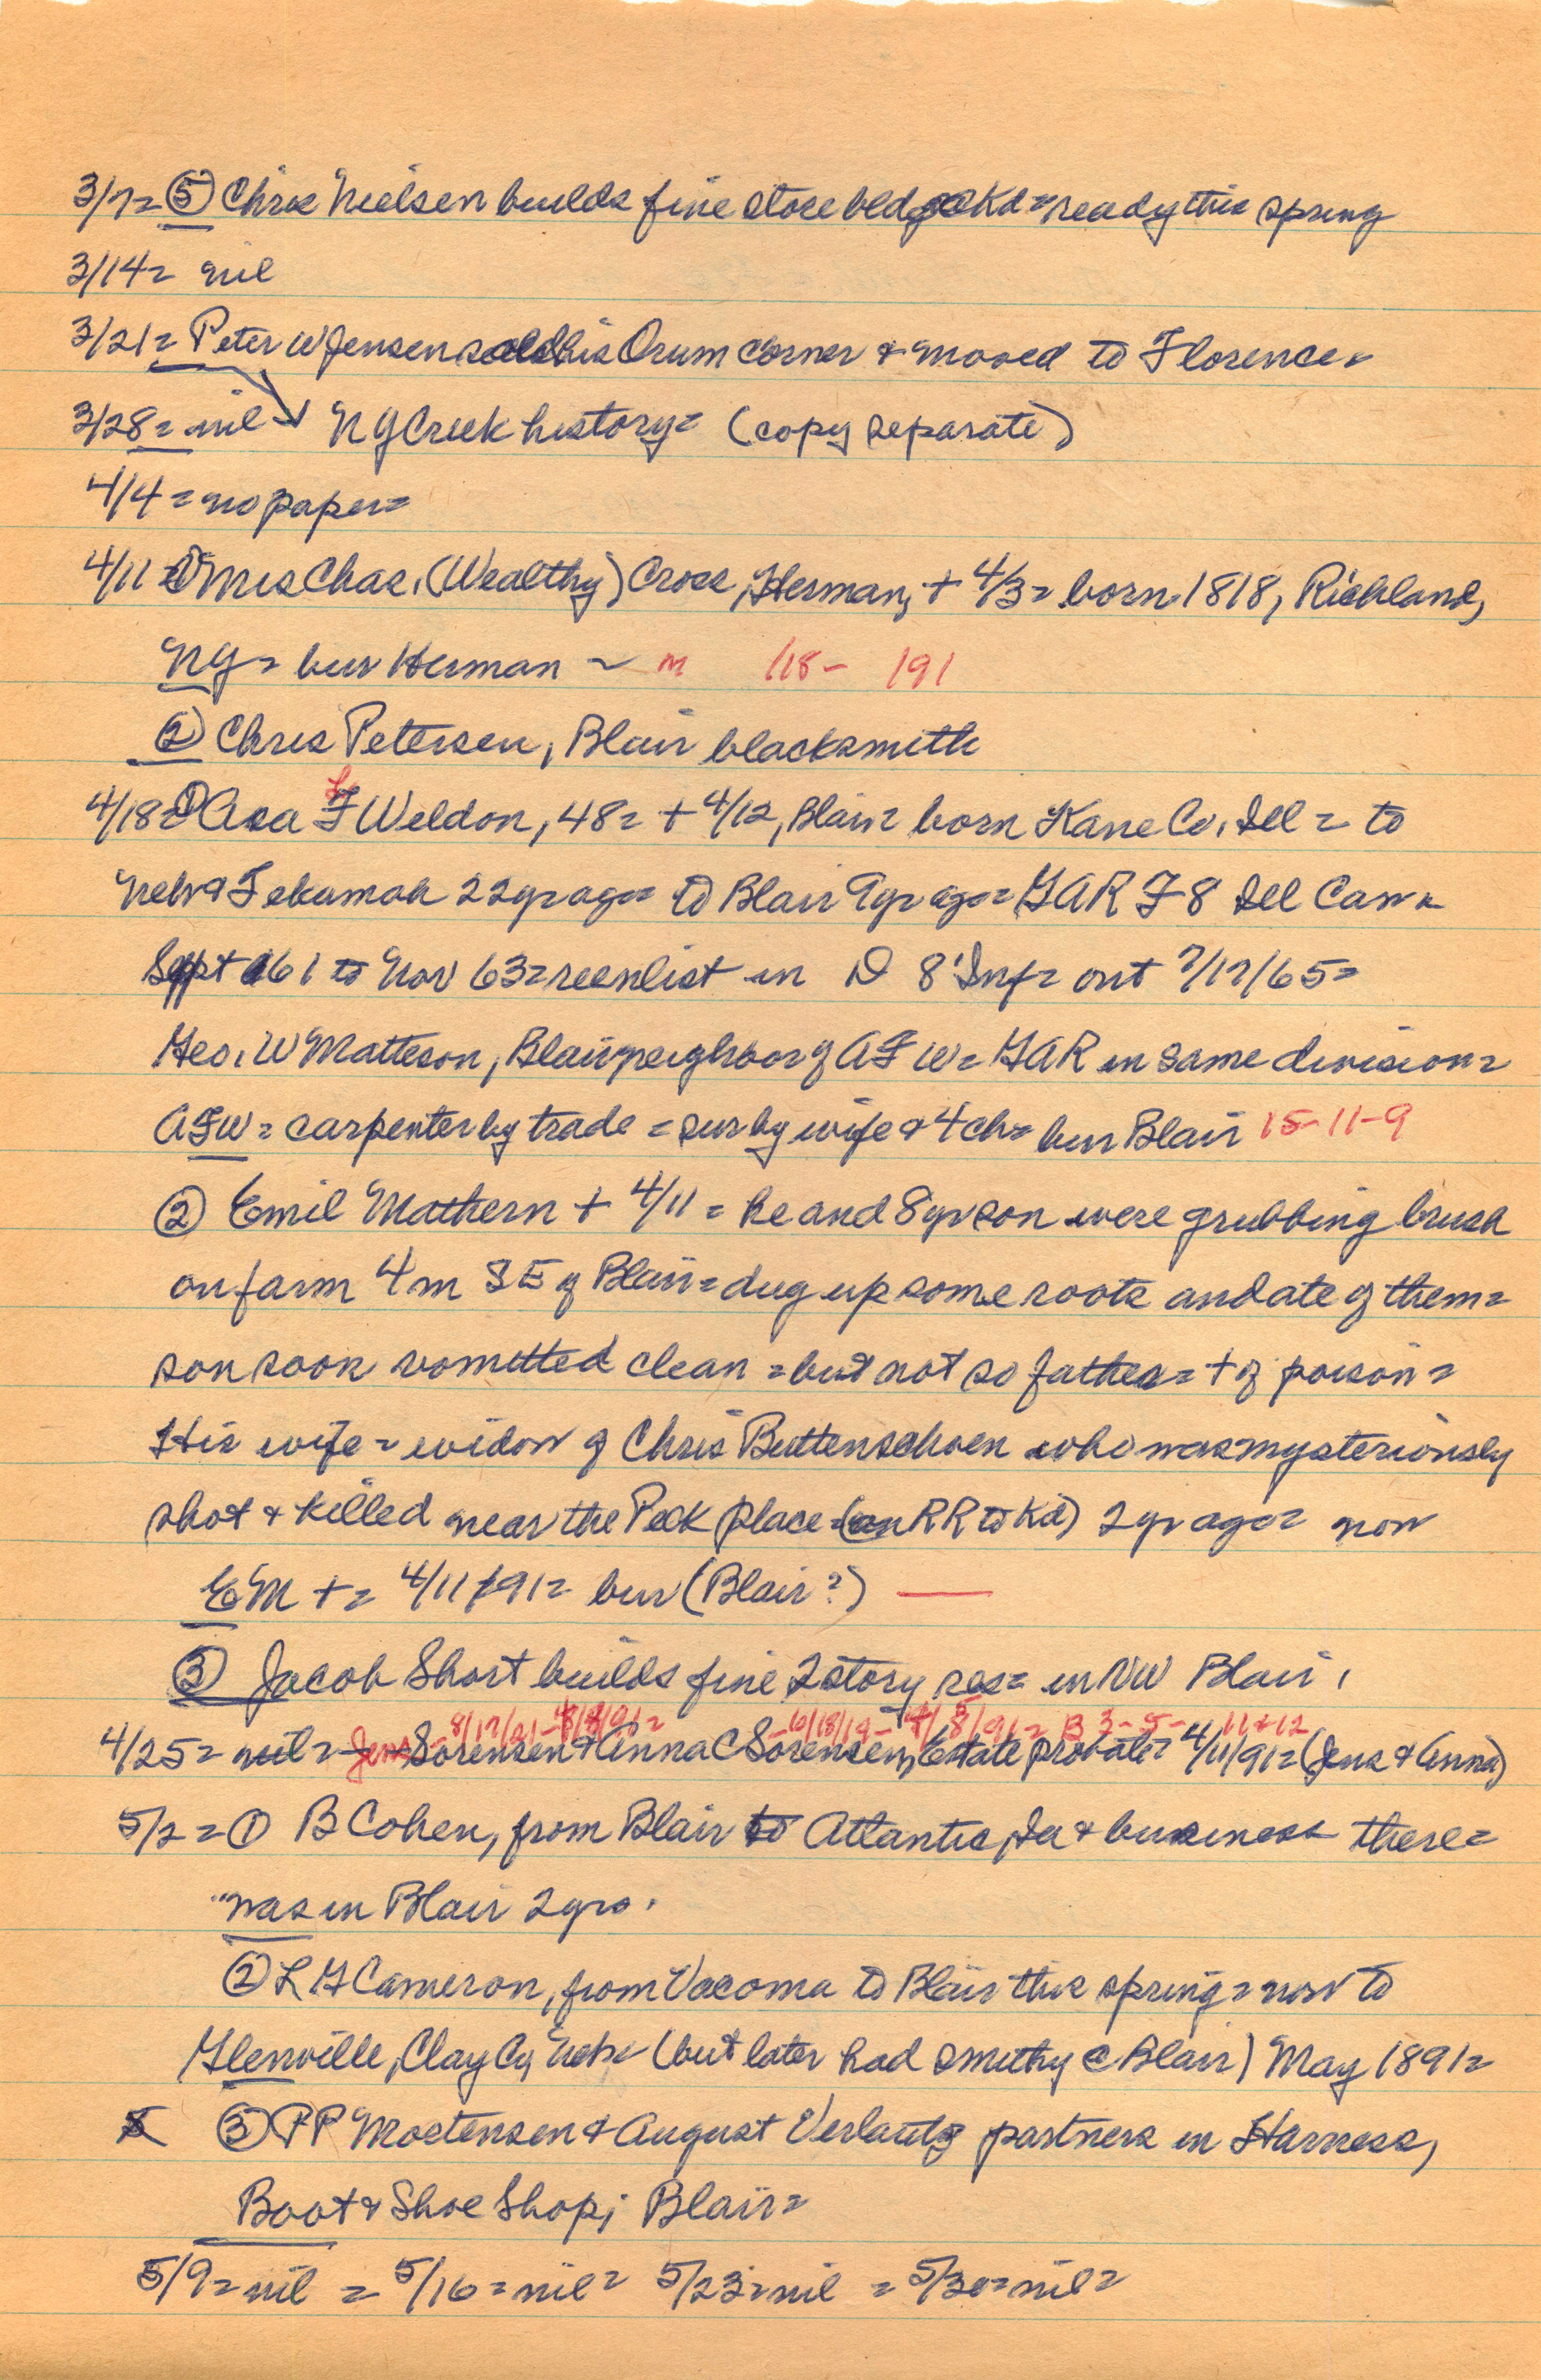 3/7= ⑤ Chris Nielsen builds fine store bldg @ Kd = ready this spring
3/14= nil
3/21= Peter W Jensen sold his Orum corner & moved to Florence=
3/28= nil NY Creek history= (copy separate)
4/4= no paper=
4/11= ① Mrs Chas. (Wealthy) Cross, Herman, + 4/3= born 1818, Richland,
NY= bur Herman ~ m 118- 191
② Chris Petersen, Blair blacksmith
L
4/18= ① Asa F Weldon, 48= + 4/12, Blair= born Kane Co, Ill = to
Neb & Tekamah 22 yr ago= to Blair 9 yr ago= GAR F 8 Ill Cav=
Sept 61 to Nov 63= reenlist in D 8' Inf= out 7/17/65=
Geo. W Matteson, Blair neighbor of AFW= GAR in same division=
AFW= carpenter by trade = sur by wife & 4 ch= bur Blair 15-11-9
② Emil Mathern + 4/11 = he and 8 yr son were grubbing brush
on farm 4 m SE of Blair= dug up some roots and ate of them=
son soon vomitted clean = but not so father= + of poison=
His wife = widow of Chris Buttenschoen who was mysteriously
shot & killed near the Peck place= (on RR to Kd) 2 yr ago= now
EM += 4/11/91= bur (Blair?)
③ Jacob Short builds fine 2 story res= in NW Blair,
8/17/21- 4/8/91= -10/18/19- 4/8/91= B 3-5- 11+12
4/25= nil= Jens Sorensen & Anna C Sorensen, Estate probate= 4/11/91= (Jens & Anna)
5/2= ① B Cohen, from Blair to Atlantic, Ia & business there=
was in Blair 2 yrs.
② L G Cameron, from Vacoma to Blair this spring= now to
Glenville, Clay Cy Neb= (but later had smithy @ Blair) May 1891=
③ PP Mortensen & August Verlautz partners in Harness,
Boot & Shoe Shop; Blair=
5/9= nil = 5/16= nil= 5/23= nil = 5/30= nil=